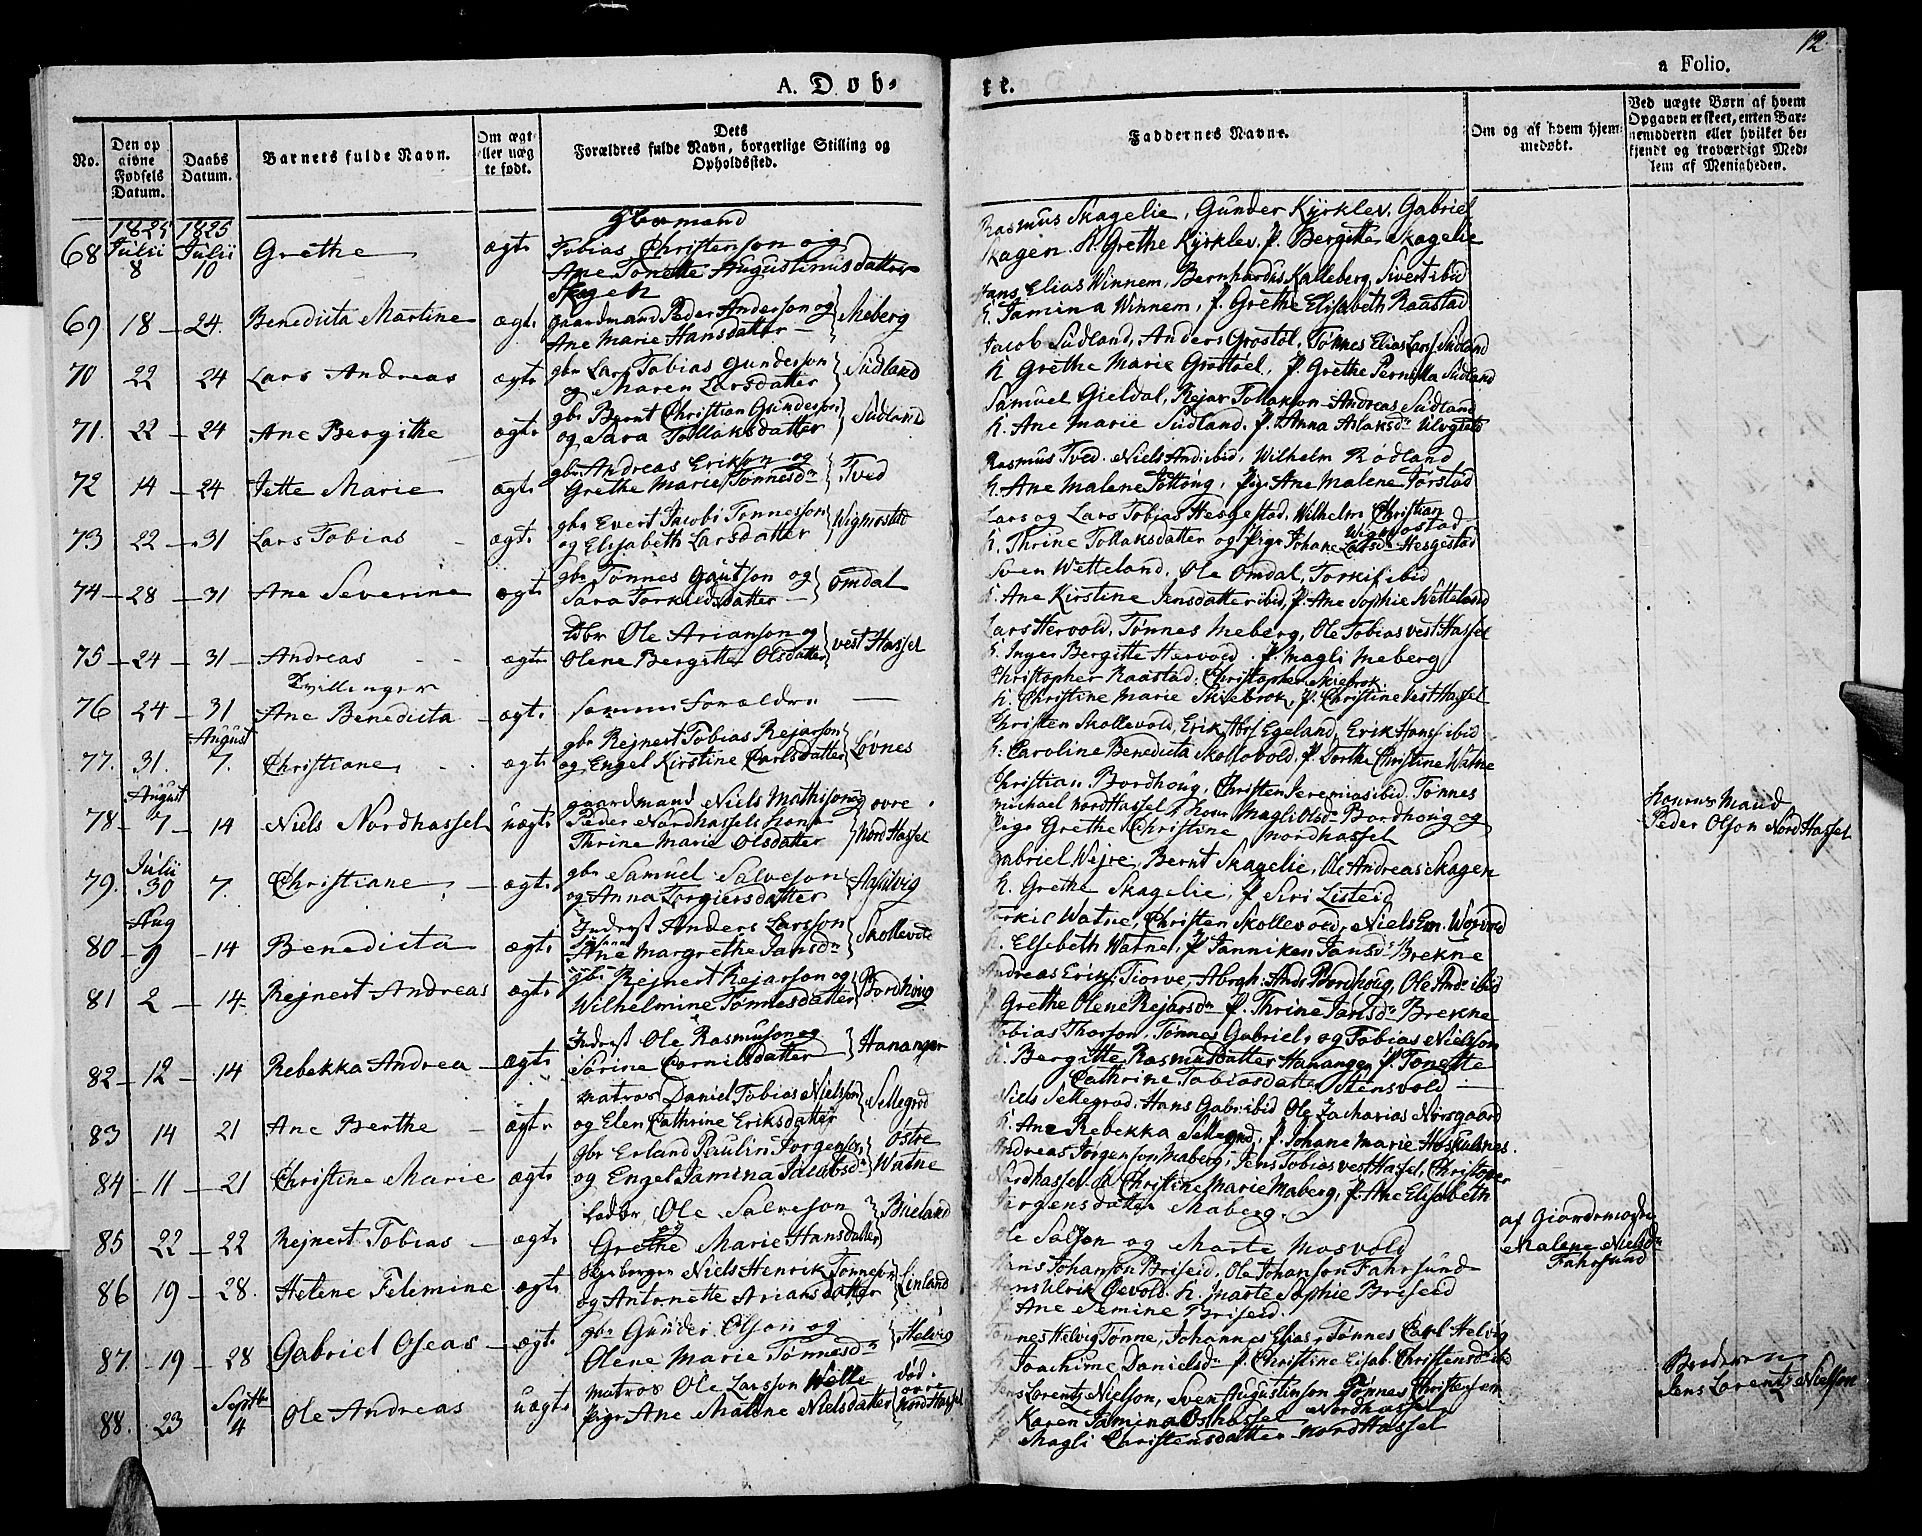 12
A. Døb-
te.
a Folio.
No.
Den op
givne
Fødsels
Datum.
Daabs
Datum.
Barnets fulde Navn.
Om ægt
eller uæg
te født.
Dets
Forældres fulde Navn, borgerlige Stilling og
Opholdssted.
Faddernes Navne.
Om og af hvem hjem-
medøbt.
Ved uægte Børn af hvem
Opgaven er skeet, enten Bar-
nemoderen eller hvilket be-
kjendt og troværdigt Med-
lem af Menigheden.
1825 1825
68 Julii 8 Julii 10 Grethe ægte
Tobias Christenson og
Ane Tonette Augustinusdatter
Skagen
Rasmus Skagelie, Gunder Kyrklev, Gabriel
Skagen. K. Grethe Kyrklev, P. Bergitte Skagelie
69 18 - 24. Benedicta Martine ægte
gaardmand Peder Anderson og
Ane Marie Hansdatter - Meberg
Hans Elias Winnem, Bernhardus Kalleberg, Sivert ibid
K. Jamina Winnem, P. Grethe Elisabeth Raastad
70 22 24 Lars Andreas ægte
gbr Lars Tobias Gunderson
og Maren Larsdatter Sudland
Jacob Sudland, Anders Grostøl, Tønnes Elias Larss Sudland
K Grethe Marie Grostøel, P. Grethe Pernilla Sudland
71. 22 - 24 Ane Bergithe ægte
gbr Bernt Christian Gunderson
og Sara Tollaksdatter Sudland
Samuel Gieldal, Rejar Tollakson Andreas Sudland
K. Ane Marie Sudland. P. Anna Aslaksdr
72 14 - 24 Jette Marie ægte
gbr Andreas Erikson og
Grethe Marie Tønnesdr Tved
Rasmus Tved. Niels And: ibid, Wilhelm Rødland
K. Ane Malene Jøllong, Pige Ane Malene Tørstad
73 22 - 31 Lars Tobias - ægte
gbr Evert Jacobi Tonneson
og Elisabeth Larsdatter Wigmostad
Lars og Lars Tobias Hesgestad, Wilhelm Christian
Wigmostad
K. Thrine Tollaksdatter og Pige Johane Larsdr Hesgestad
74 - 28 - 31 Ane Severine ægte
gbr Tønnes Gautson og
Sara Torkildsdatter - Omdal
Sven Wetteland, Ole Omdal, Torkil ibid
K. Ane Kirstine Jensdatter ibid, P. Ane Sophie Wetteland
75 - 24 - 31 - Andreas ægte
Ole Arianson og
Olene Bergitte Olsdatter vest Hassel
Lars Hervold, Tønnes Meberg, Ole Tobias vest Hassel
K. Inger Bergitte Hervold. P. Magli Meberg
Tvillinger
76 24 - 31 Ane Benedicta - ægte
samme Forældre -
Christopher Raastad, Christopher Skiebrok,
K. Christine Marie Skiebrok, P. Christine vest Hassel
77. 31. August 7. Christiane ægte
gbr Rejnert Tobias Rejarson
og Engel Kirstine Carlsdatter Løvnes
Christen Skollevold, Erik Abrs Egeland, Erik Hanss ibid
K: Caroline Benedicta Skollevold. P. Dorthe Christine Watne
78 - August 7 - 14 Niels Nordhassel uægte
gaardmand Niels Mathison
Peder Nordhassels kone
Thrine Marie Olsdatter øvre Nord Hassel
Christian Bordhoug, Christen Jeremias ibid. Tønnes
Michael Nord Hassel, Kone Magli Olsdr Bordhoug og
Pige Grethe Christine Nordhassel
Konens Mand
Peder Olson Nord Hassel
79. Julii 30 7. Christiane - ægte
gbr Samuel Salveson
og Anna Torgiersdatter Hasselvig
Gabriel Wejre, Bernt Skagelie, Ole Andreas Skagen
K. Grethe Skagelie, P Siri Listeid
80 - Aug 9 - 14 Benedicta ægte
Inderst Anders Larsson
Ane Margrethe Jansdr Skollevold
Torkil Watne, Christen Skollevold, Niels Em.
K. Elsebeth Watne, P Janniken Jansdr Brekne
81 2 - 14. Rejnert Andreas ægte
gbr Rejnert Rejarson og
Wilhelmine Tønnesdatter Bordhoug
Andreas Eriks: Tjorve, Abrah: Ands Bordhoug, Ole And: ibid
P Grethe Olene Rejarsdr P. Thrine Jansdr Brekne
82 - 12 - 14 Rebekka Andrea - ægte
Inderst Ole Rasmuson og
Sørine Cornilsdatter Hananger
Tobias Thorson, Tønnes Gabriel, og Tobias Nielson
K. Bergitte Rasmusdatter Hananger P. Tonette
Cathrine Tobiasdatter Stensvold
83 14 21 Ane Berthe - ægte
Matros Daniel Tobias Nielsson
og Elen Cathrine Eriksdatter Sellegrod
Niels Sellegrod, Hans Gabr: ibid Ole Zacharias Norsgaard
K. Ane Rebekka Sellegrod, P. Johane Marie
84 - 11 - 21 Christine Marie ægte
gbr Erland Paulin Jorgenson
og Engel Jamina Jacobsdr Østre Watne
Andreas Jørgenson Maberg, Jens Tobias vest Hassel, Christoper
Nordhassel. K Christine Marie Maberg, P. Ane Elisabeth
Jørgensdatter Maberg.
85 22 - 22 Rejnert Tobias - ægte
Ole Salveson
og
Grethe Marie Hansdatter Bueland
Ole Salson og Marte Mosvold
af Giordemoder
Malene Nielsdr
Fahrsund
86 19 - 28. Helene Felemine ægte
Niels Henrik Tønneson
og Antonette Ariansdatter Linland
Hans Johanson Briseid, Ole Johanson Fahrsund
Jens Ulrik K. Marte Sophie Briseid
P Ane Semine Briseid.
87. - 19 - 28 Gabriel Oseas - ægte
gbr Gunder Olson og
Olene Marie Tønnesdr Helvig
Tønnes Helvig Tønne, Johannes Elias, Tønnes Carl Helvig
K Joachime Danielsdr P. Christine Elisab. Christensdr ibid
88. 23 Septbr 4 Ole Andreas uægte
Matros Ole Larsson Welle død.
Pige Ane Malene Nielsdatter øvre Nord Hassel
Jens Lorentz Nielson, Sven Augustinson Tønnes Christensen
Nordhassel
K Karen Jamina Osthassel
P Magli Christensdatter Nord Hassel
Broderen
Jens Lorentz Nielson